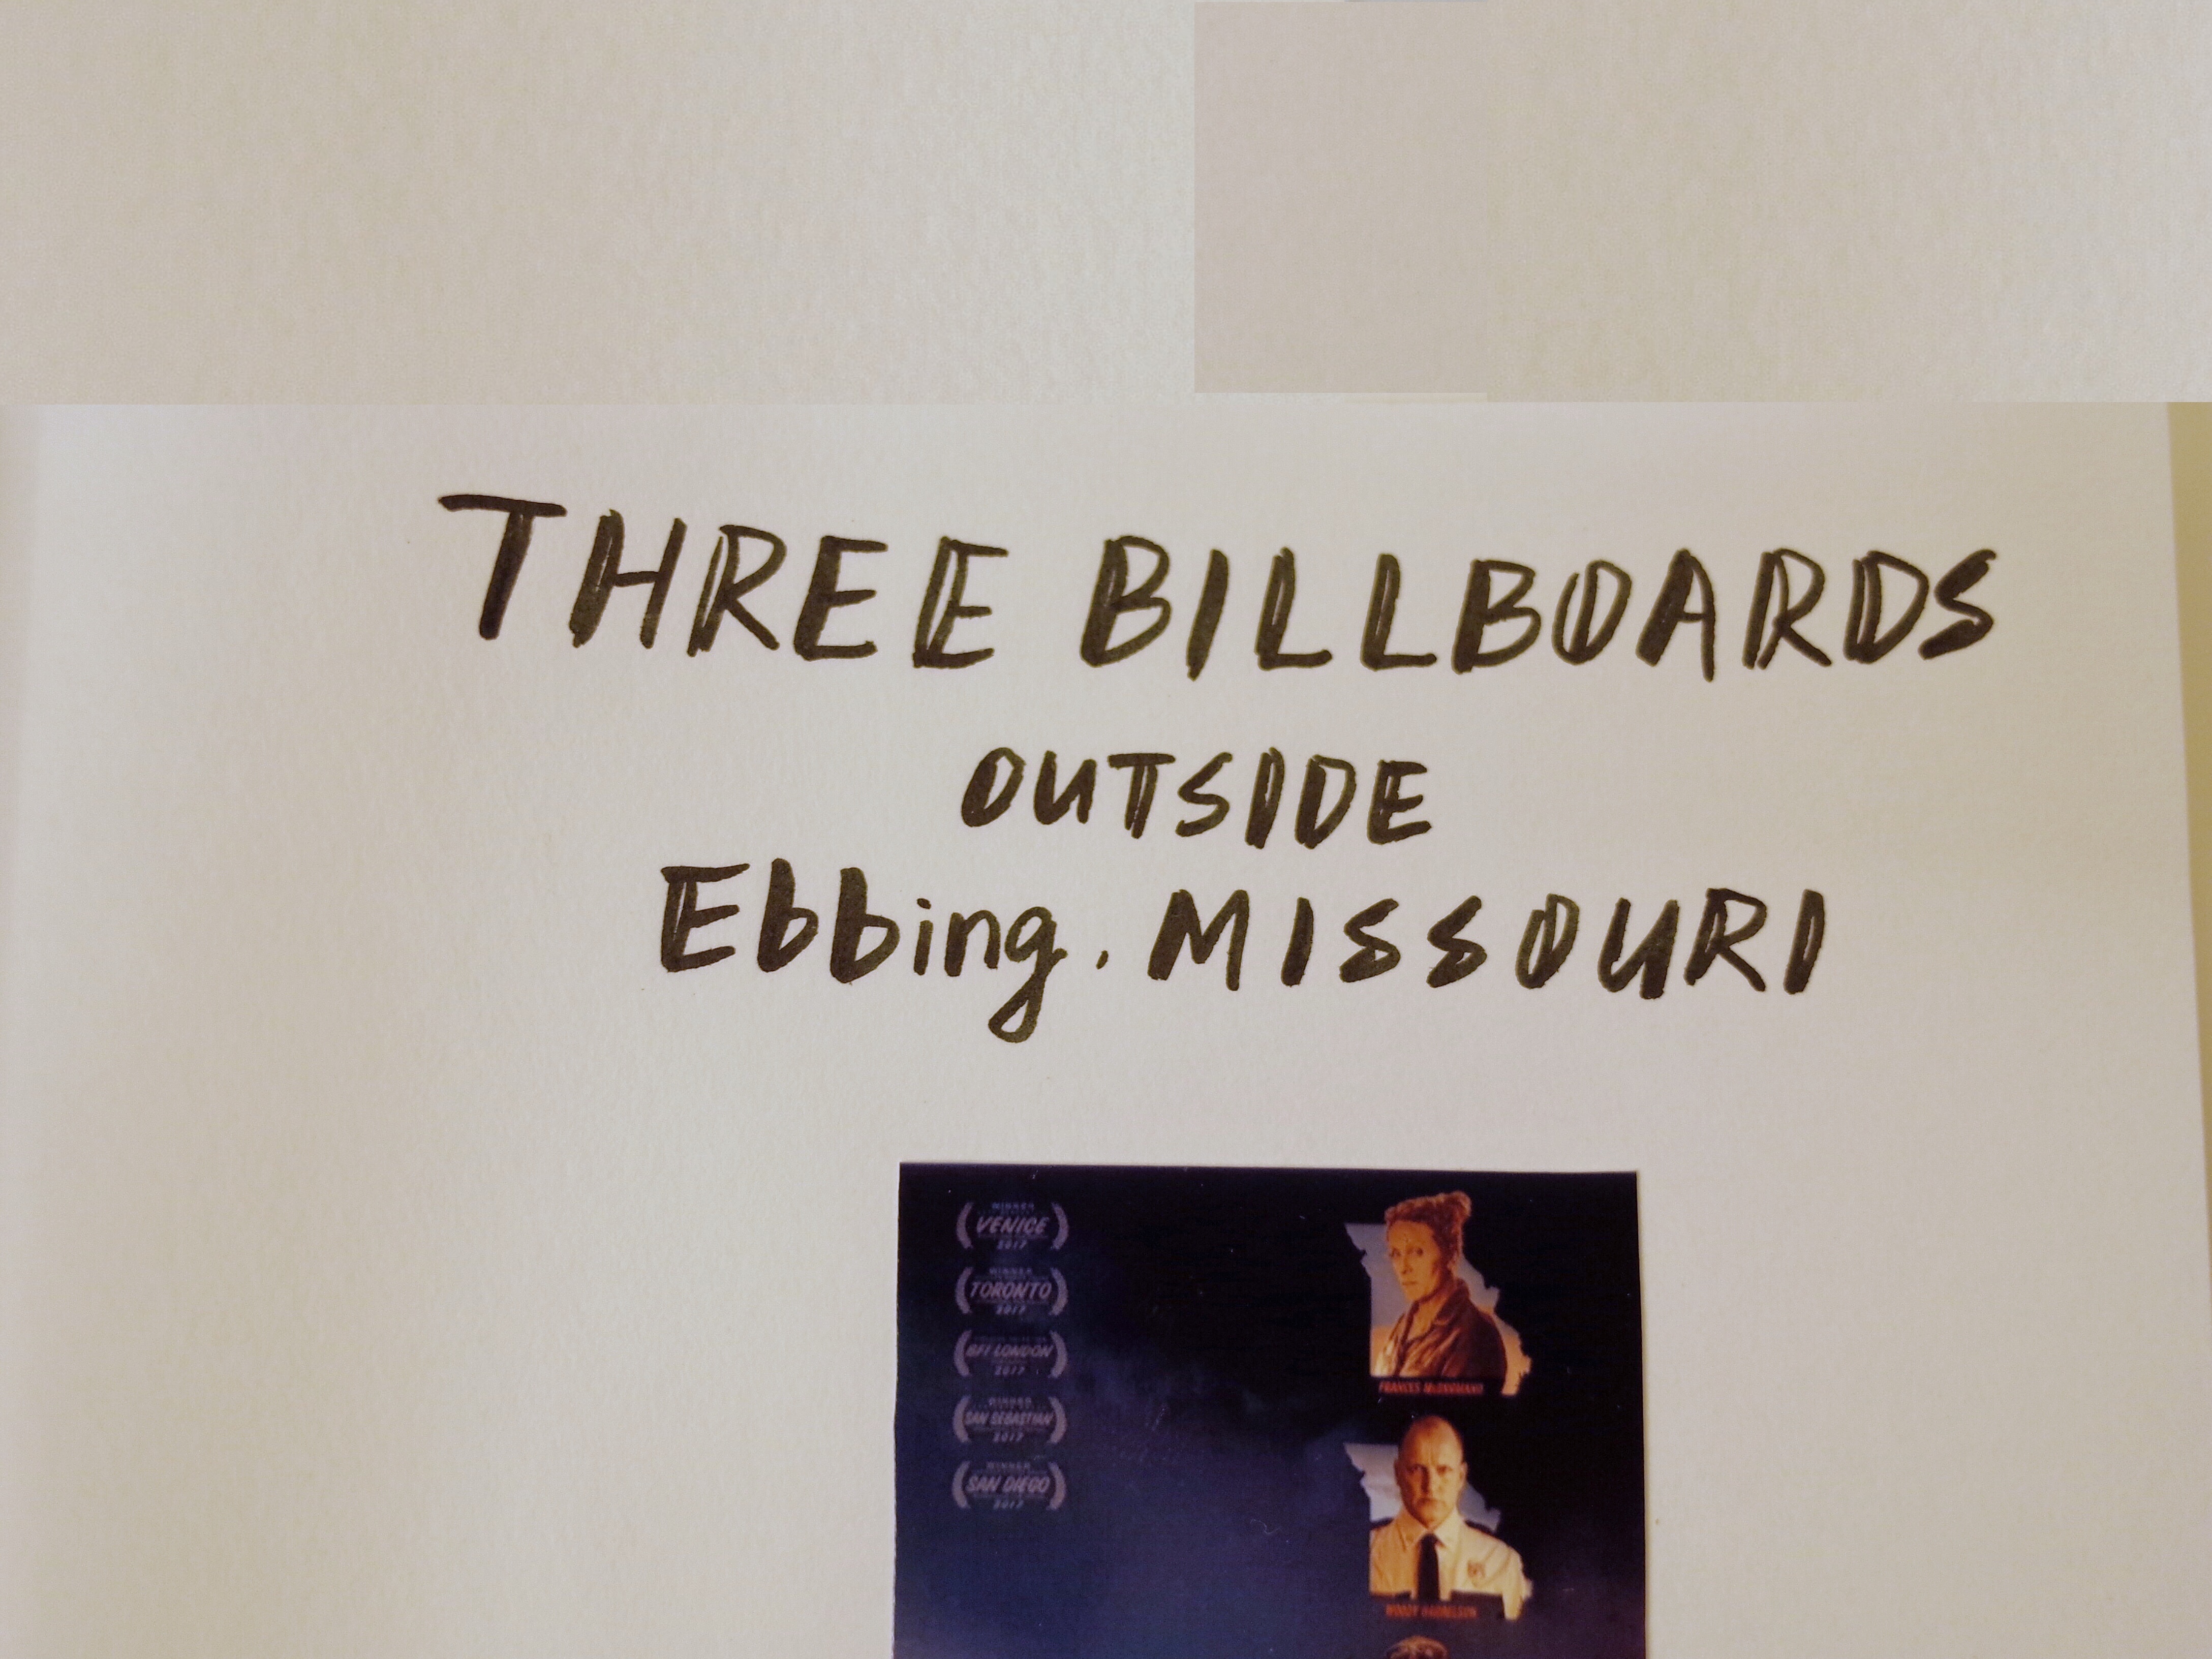 THREE BILLBOARDS
OUTSIDE
Ebbing, MISSOURI
WINNER
VENICE
2017
WINNER
TORONTO
2017
BFI LONDON
2017
WINNER
SAN SEBASTIAN
2017
WINNER
SAN DIEGO
2017
FRANCES McDORMAND
WOODY HARRELSON